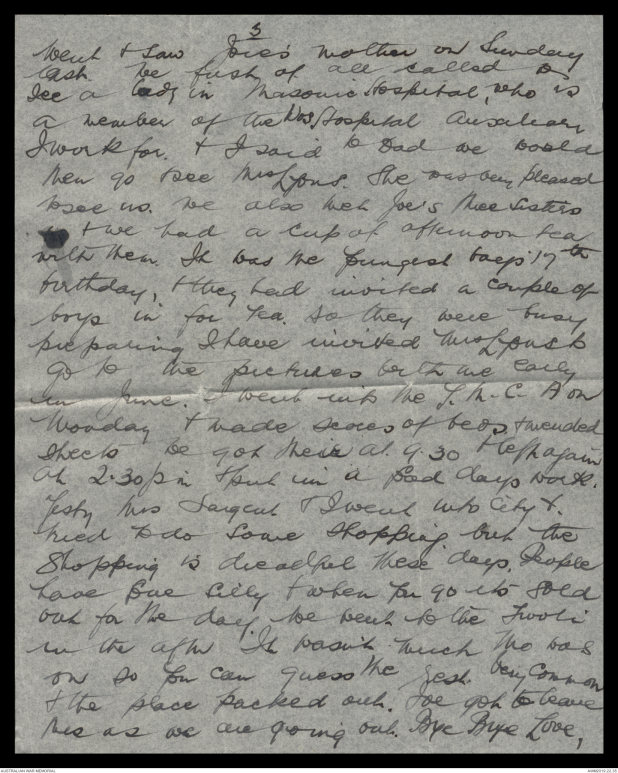 3
Went & saw Joe's mother on Sunday
last. We firstly of all called to
see a lady in Masonic Hospital, who is
a member of the Hospital Auxiliary
I work for. & I said to Dad we would
then go & see Mrs Lyons. She was very pleased
to see us. We also met Joe's three sisters
& we had a cup of afternoon tea
with them. It was the youngest boys 17th
birthday, & they had invited a couple of
boys in for tea. so they were busy
preparing I have invited Mrs Lyons to
go to the pictures with me early
in June. I went into the Y.M.C.A on
Monday & made scores of beds & mended
sheets we got there at 9.30 & left again
at 2.30 pm & put in a good days work.
Yesty Mrs Sargent & I went into City &
tried to do some shopping but the
shopping is dreadful these days. People
have gone silly & when you go its sold
out for the day. We went to the Tivoli
in the aftn It wasn't much Mo was
on so you can guess the rest. very common
& the place packed out. I've got to leave
this as we are going out. Bye Bye Love,
AUSTRALIAN WAR MEMORIAL